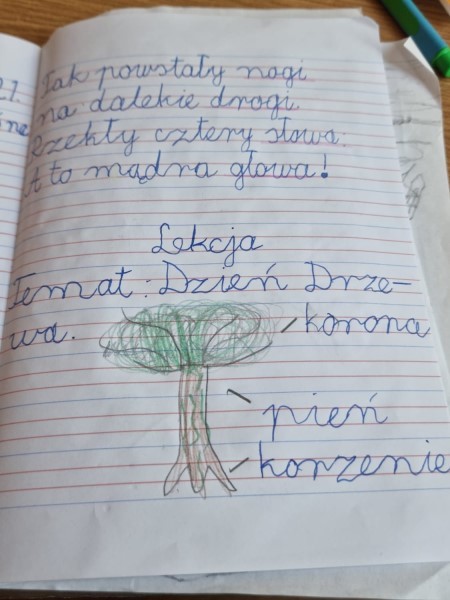 Tak powstały nogi
na dalekie drogi.
Rzekły cztery słowa.
A to mądra głowa!
Lekcja
Temat: Dzień Drze-
wa.
korona
pień
korzenie